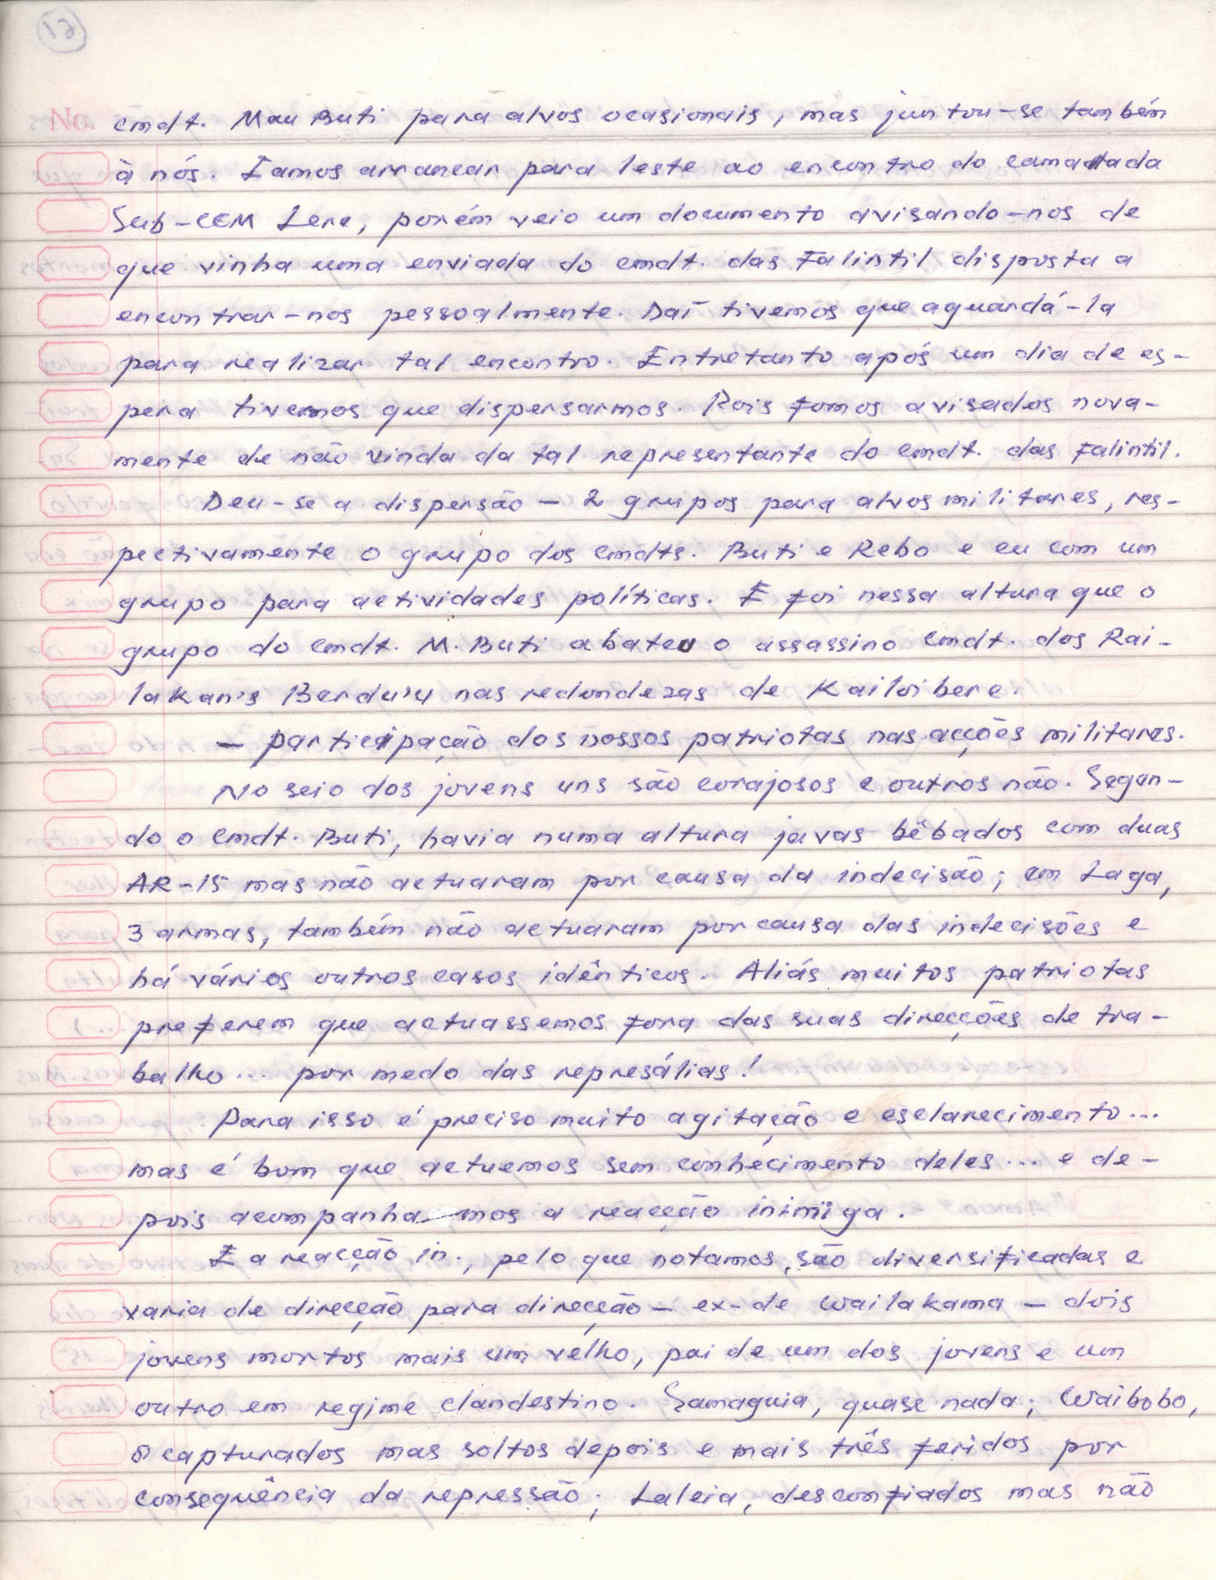 61
No.
cmdt. Mau Buti para alvos ocasionais, mas juntou-se também
à nós. Iamos arrancar para leste ao encontro do camarada
Sub-CEM Lere, porém veio um documento avisando-nos de
que vinha uma enviada do cmdt. das Falintil disposta a
encontrar-nos pessoalmente. Daí tivemos que aguardá-la
para realizar tal encontro. Entretanto após um dia de es-
pera tivemos que dispersarmos. Pois fomos avisados nova-
mente de não vinda da tal representante do cmdt. das Falintil.
Deu-se a dispersão - 2 grupos para alvos militares, res-
pectivamente o grupo dos cmdts. Buti e Rebo e eu com um
grupo para actividades políticas. E foi nessa altura que o
grupo do cmdt. M. Buti abateu o assassino cmdt. dos Rai-
lakan's Berdu'u nas redondezas de Kailoibere.
- participação dos nossos patriotas nas acções militares.
No seio dos jovens uns são corajosos e outros não. Segun-
do o cmdt. Buti, havia numa altura javas bêbados com duas
AR-15 mas não actuaram por causa da indecisão; em Laga,
3 armas, também não actuaram por causa das indecisões e
há vários outros casos idênticos. Aliás muitos patriotas
preferem que actuassemos fora das suas direcções de tra-
balho... por medo das represálias!
Para isso é preciso muito agitação e esclarecimento...
mas é bom que actuemos sem conhecimento deles... e de-
pois acompanhamos a reacção inimiga.
E a reacção in., pelo que notamos, são diversificadas e
varia de direcção para direcção - ex-de Wailakama - dois
jovens mortos mais um velho, pai de um dos jovens e um
outro em regime clandestino. Samaguia, quase nada; Waibobo,
8 capturados mas soltos depois e mais três feridos por
consequência da repressão; Laleia, desconfiados mas não